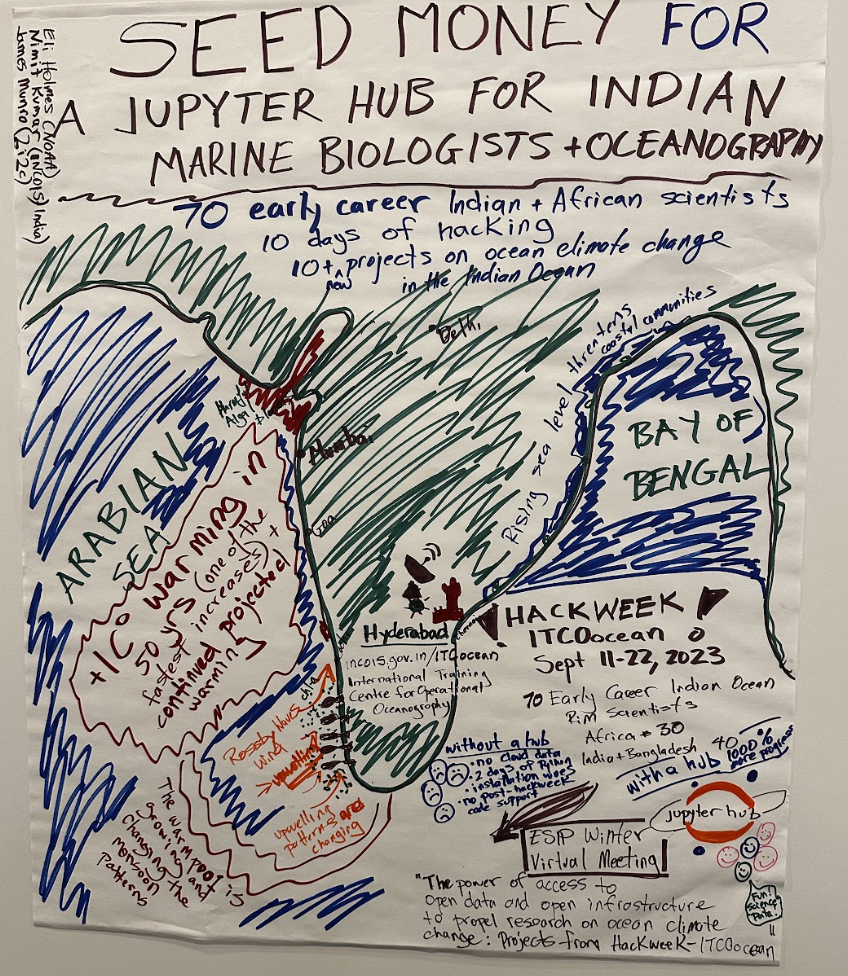 SEED MONEY FOR
A JUPYTER HUB FOR INDIAN
MARINE BIOLOGISTS + OCEANOGRAPHY
Eli Holmes (NOAA)
Nimit Kumar (INCOIS, India)
James Munro (2i2c)
70 early career Indian + African scientists
10 days of hacking
10+ new projects on ocean climate change
in the Indian Ocean
Delhi
Rising sea level threatens
coastal communities
Mumbai
Goa
ARABIAN
SEA
BAY OF
BENGAL
+1C° warming in
50 yrs (one of the
fastest increases) +
continued projected
warming
Hyderabad
incois.gov.in/ITCOocean
International Training
Centre for Operational
Oceanography
HACKWEEK
ITCOocean
Sept 11-22, 2023
70 Early Career Indian Ocean
Rim Scientists
Africa 30
India + Bangladesh 40
Rossby Waves
wind
upwelling
chla
Upwelling
patterns are
changing
The warm pool is
growing and
changing the
monsoon
patterns
without a hub
• no cloud data
• 2 days of Python
installation woes
• no post-hackweek
code support
with a hub 1000%
more progress
jupyter hub
Fun!
Science
Data!
ESIP Winter
Virtual Meeting
"The power of access to
open data and open infrastructure
to propel research on ocean climate
change: Projects from Hackweek-ITCOocean"